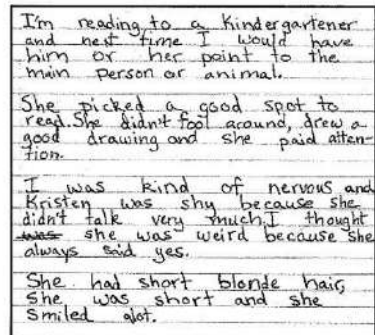 I'm reading to a Kindergartener
and next time I would have
him or her point to the
main person or animal.
She picked a good spot to
read. She didn't fool around, drew a
good drawing and she paid atten-
tion.
I was kind of nervous and
Kristen was shy because she
didn't talk very much, I thought
was she was weird because she
always said yes.
She had short blonde hair,
She was short and she
smiled alot.